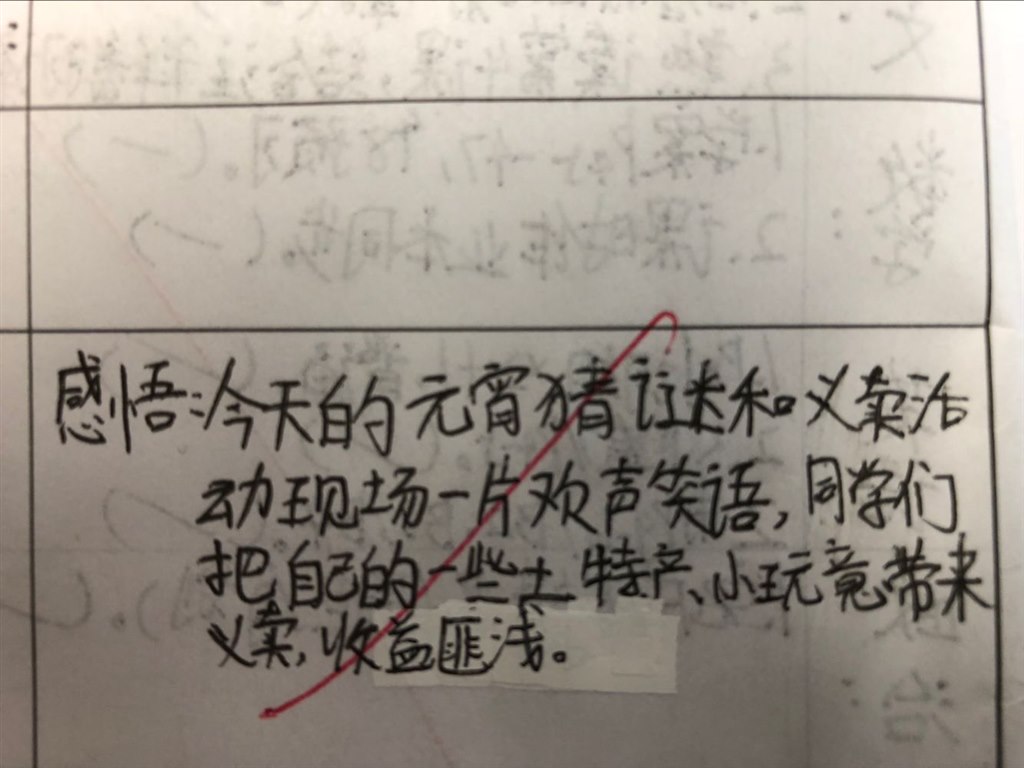 感悟:今天的元宵猜谜和义卖活
动现场一片欢声笑语,同学们
把自己的一些土特产、小玩意带来
义卖,收益匪浅。